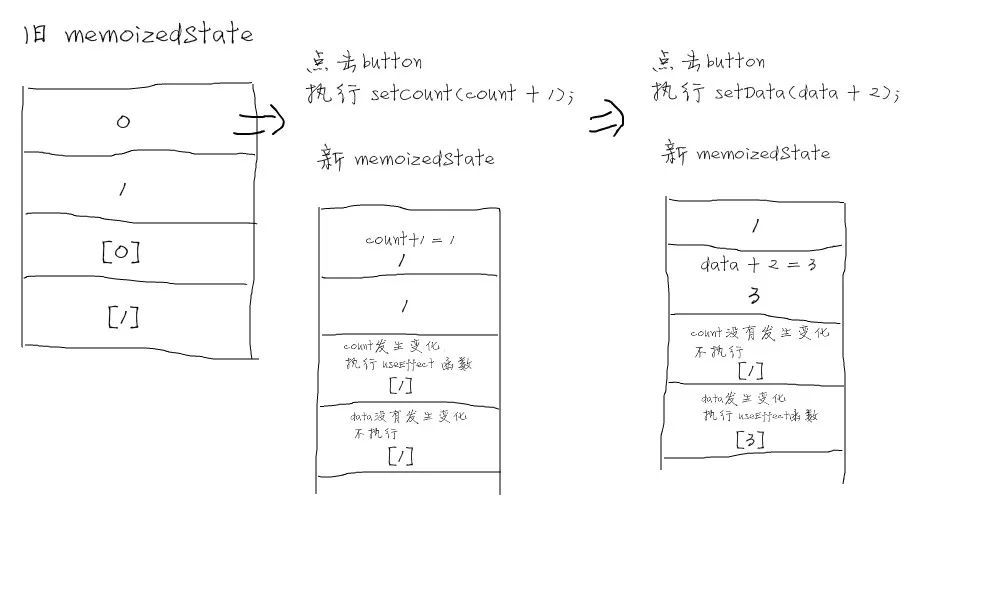 旧 memoizedState
0
1
[0]
[1]
点击button
执行 setCount(count + 1);
新 memoizedState
count+1 = 1
1
1
count发生变化
执行 useEffect 函数
[1]
data没有发生变化
不执行
[1]
点击button
执行 setData(data + 2);
新 memoizedState
1
data + 2 = 3
3
count没有发生变化
不执行
[1]
data发生变化
执行useEffect函数
[3]